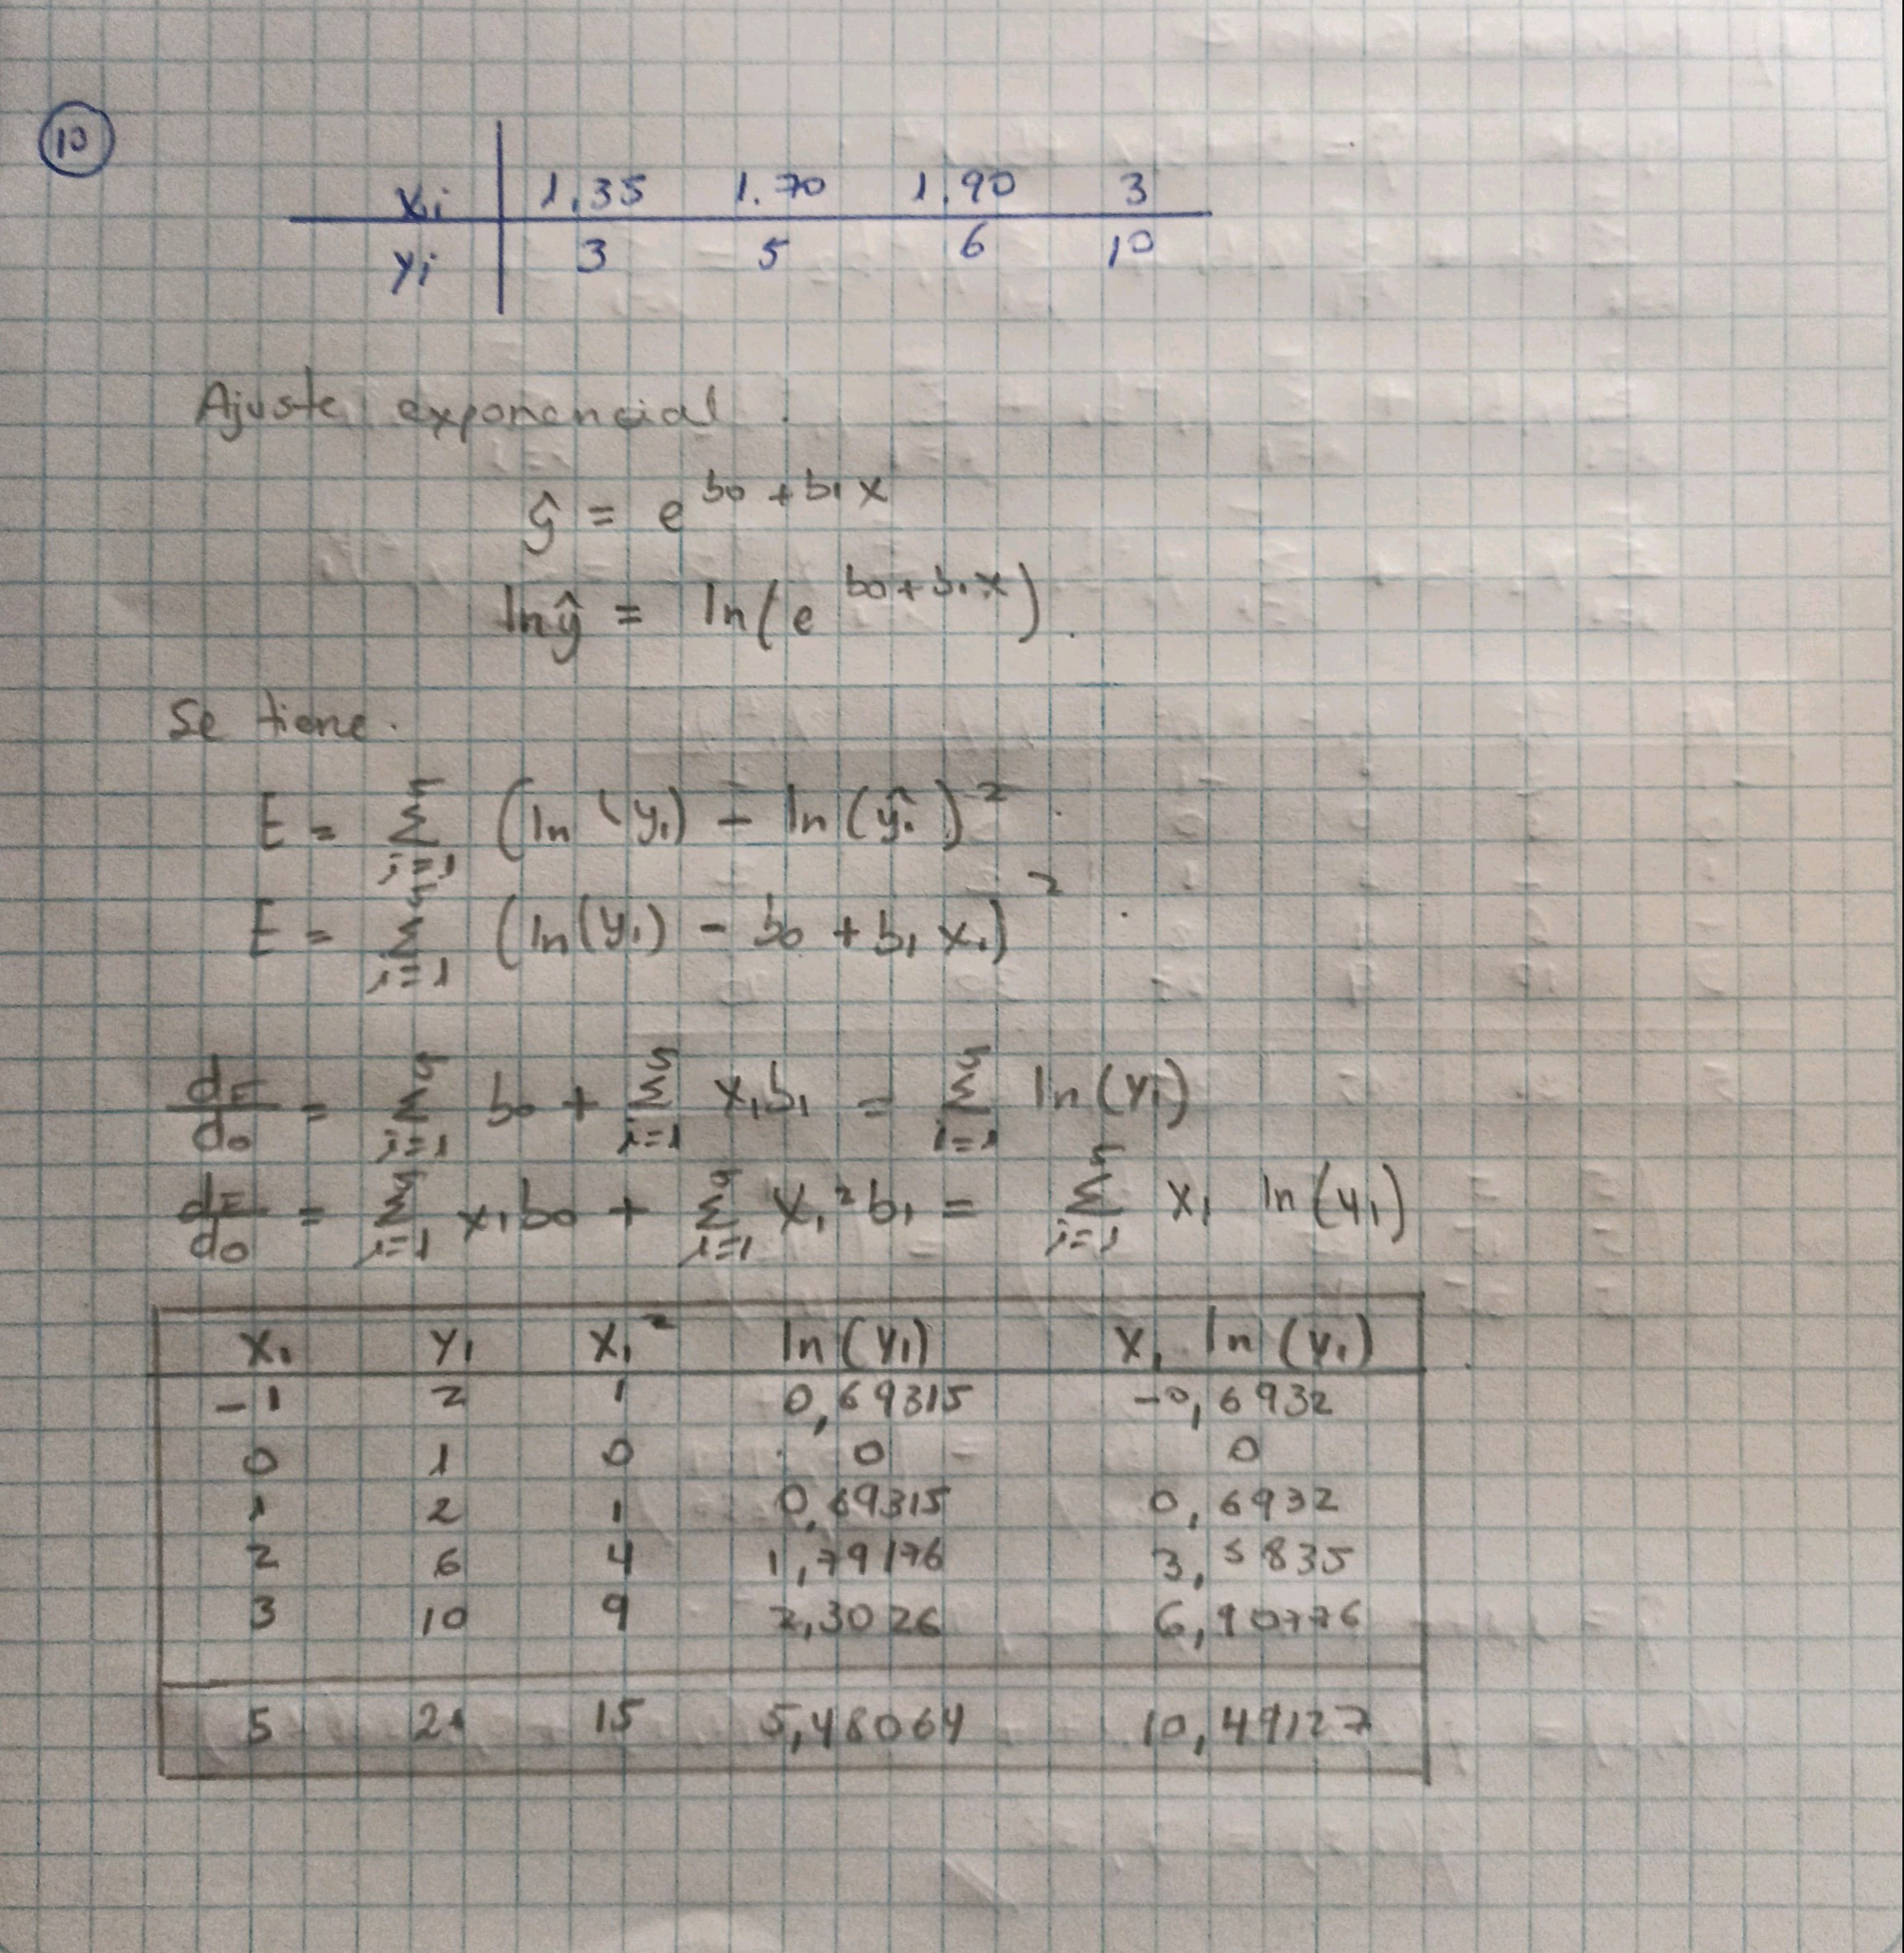 10
xi 1,35 1.70 1,90 3
yi 3 5 6 10
Ajuste exponencial.
ŷ = e^(b0 + b1 x)
ln ŷ = ln(e^(b0 + b1 x)).
Se tiene.
E = Σ_{i=1}^{n} (ln (y1) - ln (ŷ1))^2
E = Σ_{i=1}^{n} (ln(y1) - b0 + b1 x1)^2
dE/d0 = Σ_{i=1}^{n} b0 + Σ_{i=1}^{n} x1 b1 = Σ_{i=1}^{n} ln(y1)
dE/d0 = Σ_{i=1}^{n} x1 b0 + Σ_{i=1}^{n} x1^2 b1 = Σ_{i=1}^{n} x1 ln(y1)
x1 y1 x1^2 ln(y1) x1 ln(y1)
-1 2 1 0,69315 -0,6932
0 1 0 0 0
1 2 1 0,69315 0,6932
2 6 4 1,79176 3,5835
3 10 9 2,3026 6,90776
5 21 15 5,48064 10,49127